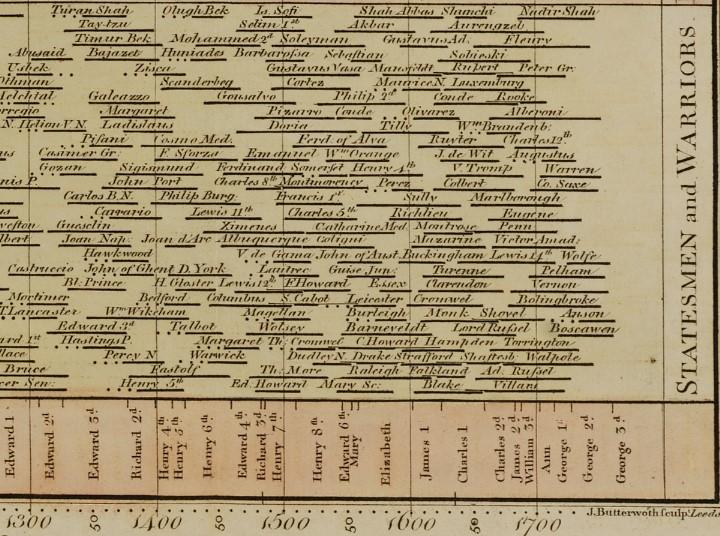 Turan Shah Olugh Bek Is. Sofi Shah Abbas Shanchi Nadir Shah
Taytzu Selim 1st Akbar Aurengzeb
Timur Bek Mohammed 2d Soleyman Gustavus Ad. Fleury
Abusaid Bajazet Huniades Barbarossa Sebastian Sobieski
Usbek Zisca Gustavus Vasa Mansfeldt Rupert Peter Gr.
Othman Scanderbeg Cortez Maurice N. Luxemburg
Melchtal Galeazzo Gonsalvo Philip 2d Conde Rooke
Margaret Pizarro Conde Olivarez Alberoni
N. Helion V.N. Ladislaus Doria Tilly Wm. Brandenb.
Pisani Cosmo Med. Ferd. of Alva Ruyter Charles 12th
Casimer Gr. F. Sforza Emanuel Wm Orange J. de Wit Augustus
Gozan Sigismund Ferdinand Somerset Henry 4th V. Tromp Warren
nis P. John Port Charles 8th Montmorency Perez Colbert Co. Saxe
Carlos B.N. Philip Burg. Francis 1st Sully Marlborough
Carrario Lewis 11th Charles 5th Richlieu Eugene
Gueselin Ximenes Catharine Med. Montrose Penn
lbert Joan Nap. Joan d'Arc Albuquerque Coligni Mazarine Victor Amad:
Hawkwood V de Gama John of Aust. Buckingham Lewis 14th Wolfe
Castruccio John of Ghent D. York Lautrec Guise Jun. Turenne Pelham
Bl. Prince H. Gloster Lewis 12th E Howard Essex Clarendon Vernon
Mortimer Bedford Columbus S. Cabot Leicester Cromwel Bolingbroke
T. Lancaster Wm Wikeham Magellan Burleigh Monk Shovel Anson
Edward 3d Talbot Wolsey Barneveldt Lord Russel Boscawen
ard 1st Hastings P. Margaret Th. Cromwel C. Howard Hampden Torrington
llace Percy N. Warwick Dudley N. Drake Strafford Shaftesb. Walpole
Bruce Fastolf Th. More Raleigh Falkland Ad. Russel
cer Sen: Henry 5th Ed. Howard Mary Sc: Blake Villars
STATESMEN and WARRIORS
Edward 1
Edward 2d
Edward 3d
Richard 2d
Henry 4th
Henry 5th
Henry 6th
Edward 4th
Richard 3d
Henry 7th
Henry 8th
Edward 6th
Mary
Elizabeth
James 1
Charles 1
Charles 2d
James 2d
William 3d
Ann
George 1st
George 2d
George 3d
1300 50 1400 50 1500 50 1600 50 1700
J. Butterworth sculp. Leeds